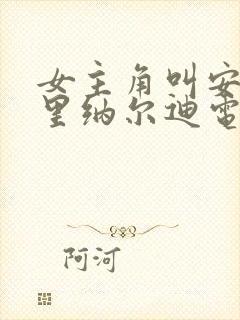 女主角叫安
里纳尔迪电
阿河